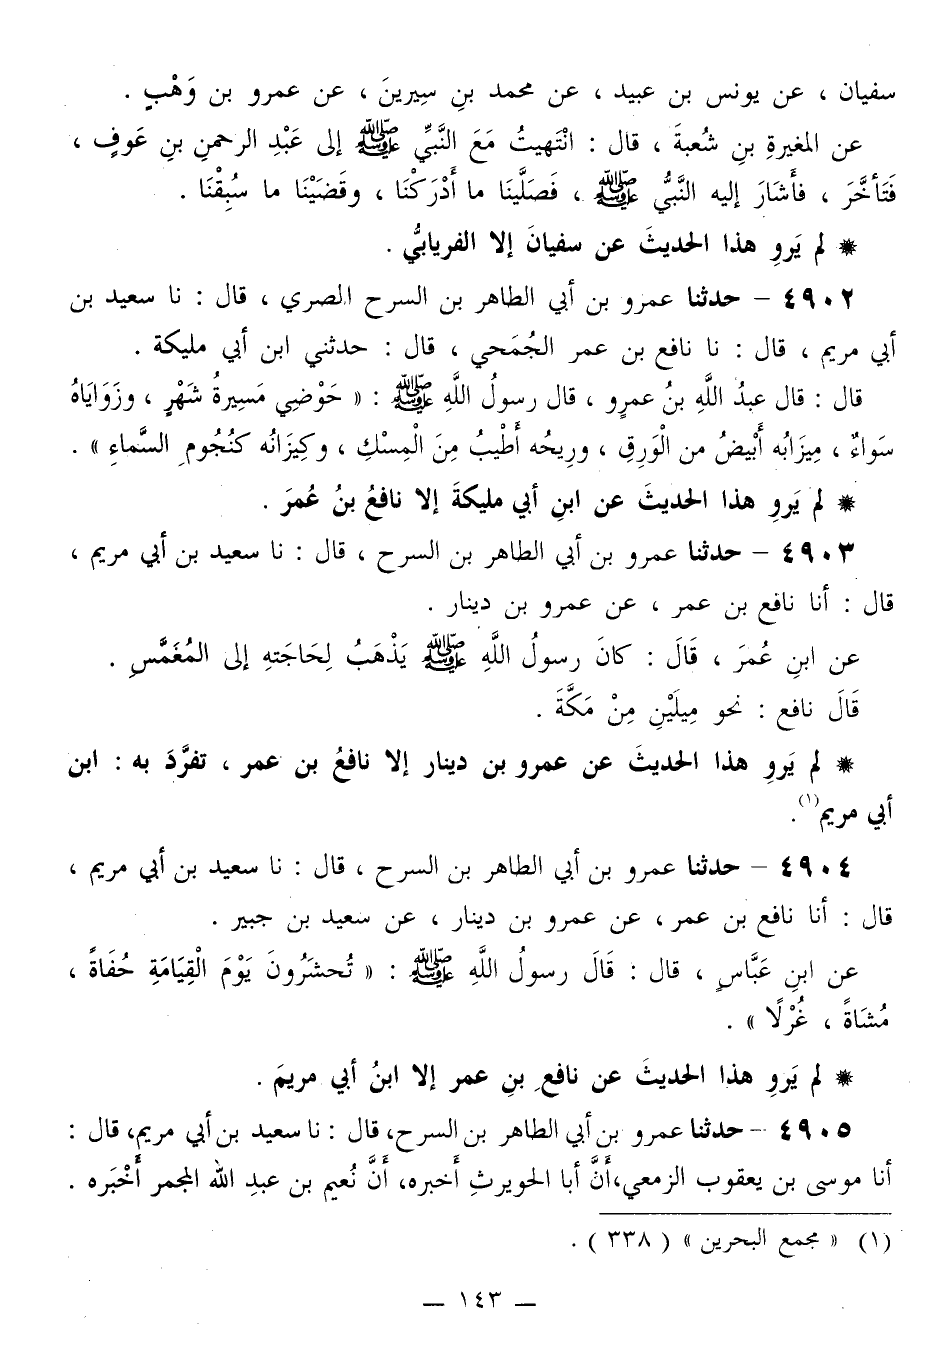 سفيان ، عن يونس بن عبيد ، عن محمد بنِ سِيرينَ ، عن عمرو بن وَهْبٍ .
عن المغيرةِ بنِ شُعبةَ ، قال : انْتَهيتُ مَعَ النَّبيِّ ﷺ إلى عَبْدِ الرحمنِ بنِ عَوفٍ ،
فَتَأخَّرَ ، فأَشَارَ إليه النَّبيُّ ﷺ ، فَصَلَّينَا ما أَدْرَكْنَا ، وقَضَيْنَا ما سُبِقْنَا .
* لم يَروِ هذا الحديثَ عن سفيانَ إلا الفريابيُّ .
٤٩٠٢ – حدثنا عمرو بن أبي الطاهر بن السرح المصري ، قال : نا سعيد بن
أبي مريم ، قال : نا نافع بن عمر الجُمَحي ، قال : حدثني ابن أبي مليكة .
قال : قال عبدُ اللَّهِ بنُ عمرٍو ، قال رسولُ اللَّهِ ﷺ : « حَوْضِي مَسِيرةُ شَهْرٍ ، وزَوَايَاهُ
سَواءٌ ، مِيزَابُه أَبْيضُ من الْوَرِقِ ، وريحُه أَطْيبُ مِنَ الْمِسْكِ ، وكِيزَانُه كنُجُومِ السَّماءِ » .
* لم يَروِ هذا الحديثَ عن ابنِ أبي مليكةَ إلا نافعُ بنُ عُمرَ .
٤٩٠٣ – حدثنا عمرو بن أبي الطاهر بن السرح ، قال : نا سعيد بن أبي مريم ،
قال : أنا نافع بن عمر ، عن عمرو بن دينار .
عن ابنِ عُمرَ ، قَالَ : كانَ رسولُ اللَّهِ ﷺ يَذْهَبُ لِحَاجَتهِ إلى المُغَمَّسِ .
قَالَ نافع : نحو مِيلَيْنِ مِنْ مَكَّةَ .
* لم يَروِ هذا الحديثَ عن عمرو بن دينار إلا نافعُ بن عمر ، تفرَّدَ به : ابن
أبي مريم(١).
٤٩٠٤ – حدثنا عمرو بن أبي الطاهر بن السرح ، قال : نا سعيد بن أبي مريم ،
قال : أنا نافع بن عمر ، عن عمرو بن دينار ، عن سعيد بن جبير .
عن ابنِ عَبَّاسٍ ، قال : قَالَ رسولُ اللَّهِ ﷺ : « تُحشَرُونَ يَوْمَ الْقِيَامَةِ حُفَاةً ،
مُشَاةً ، غُرْلًا » .
* لم يَروِ هذا الحديثَ عن نافعِ بنِ عمر إلا ابنُ أبي مريمَ .
٤٩٠٥ – حدثنا عمرو بن أبي الطاهر بن السرح، قال : نا سعيد بن أبي مريم، قال :
أنا موسى بن يعقوب الزمعي،أَنَّ أبا الحويرثِ أَخبره، أَنَّ نُعيم بن عبدِ الله المجمر أَخْبَره .
(١) « مجمع البحرين » ( ٣٣٨ ) .
– ١٤٣ –